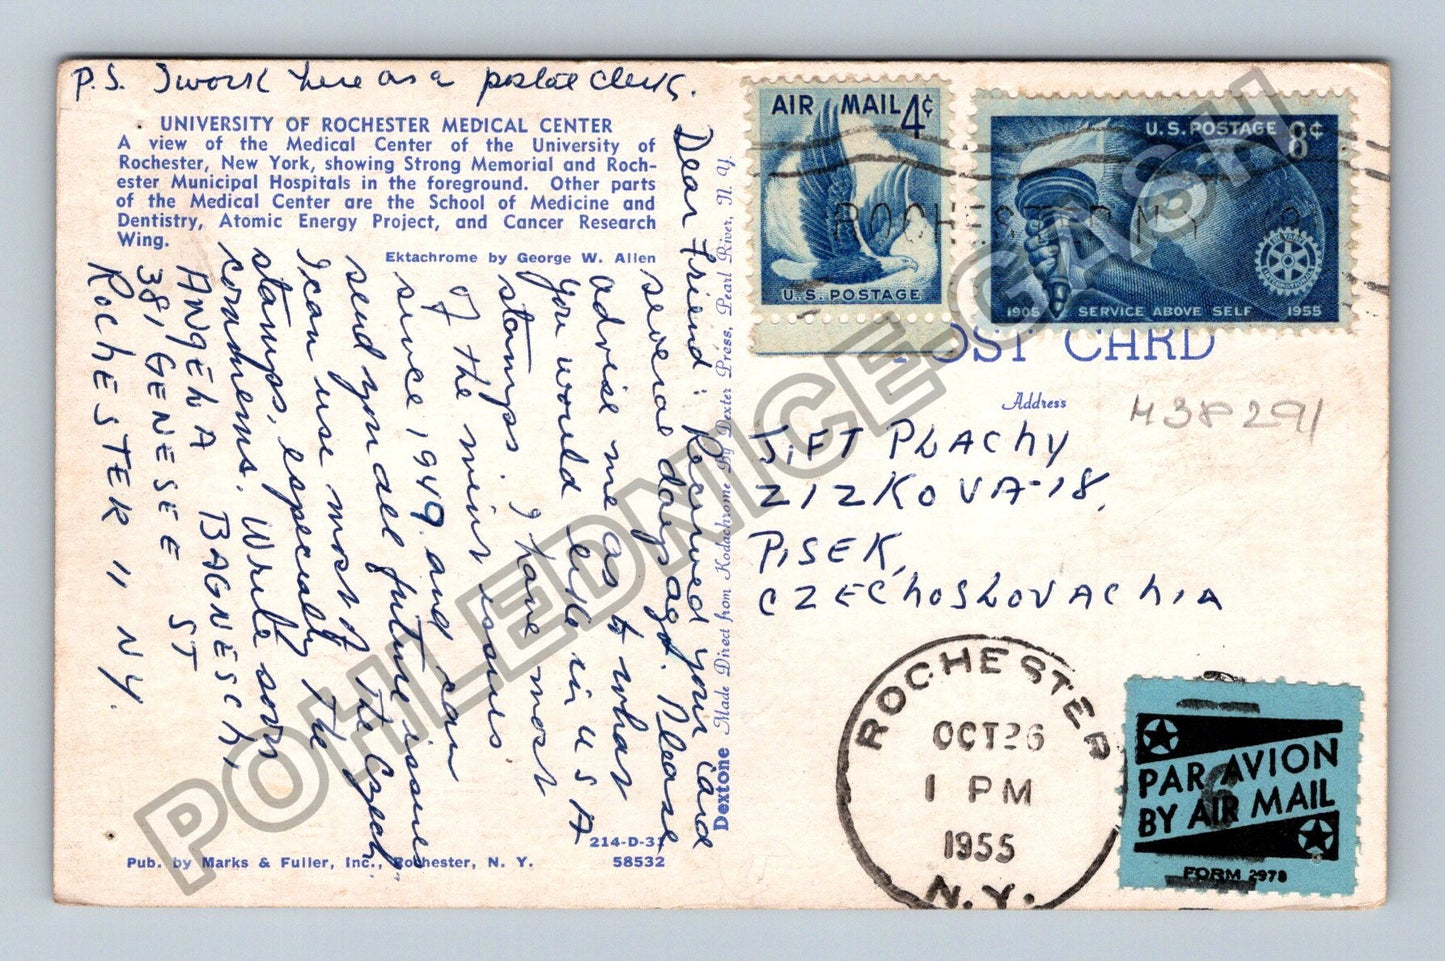 P.S. I work here as a postal clerk.
UNIVERSITY OF ROCHESTER MEDICAL CENTER
A view of the Medical Center of the University of
Rochester, New York, showing Strong Memorial and Roch-
ester Municipal Hospitals in the foreground. Other parts
of the Medical Center are the School of Medicine and
Dentistry, Atomic Energy Project, and Cancer Research
Wing.
Ektachrome by George W. Allen
Dear Friend: Received your card
several days ago. Please
advise me as to what
you would like in USA
stamps. I have most
of the mint issues
since 1949 and can
send you all future issues
I can use most of the Czech
stamps, especially the
commems. Write soon
ANGELA BAGNESCHI,
381 GENESEE ST
ROCHESTER 11 NY.
214-D-31
58532
Pub. by Marks & Fuller, Inc., Rochester, N. Y.
Dextone Made Direct from Kodachrome By Dexter Press, Pearl River, N. Y.
AIR MAIL 4¢
U.S. POSTAGE
U.S. POSTAGE 8¢
1905 SERVICE ABOVE SELF 1955
ROCHESTER N.Y
POST CARD
Address
H38291
JIFT PLACHY
ZIZKOVA-18,
PISEK,
CZECHOSLOVACHIA
ROCHESTER
OCT 26
1 PM
1955
N.Y.
PAR AVION
BY AIR MAIL
FORM 2978
6
POHLEDNICE-GASH